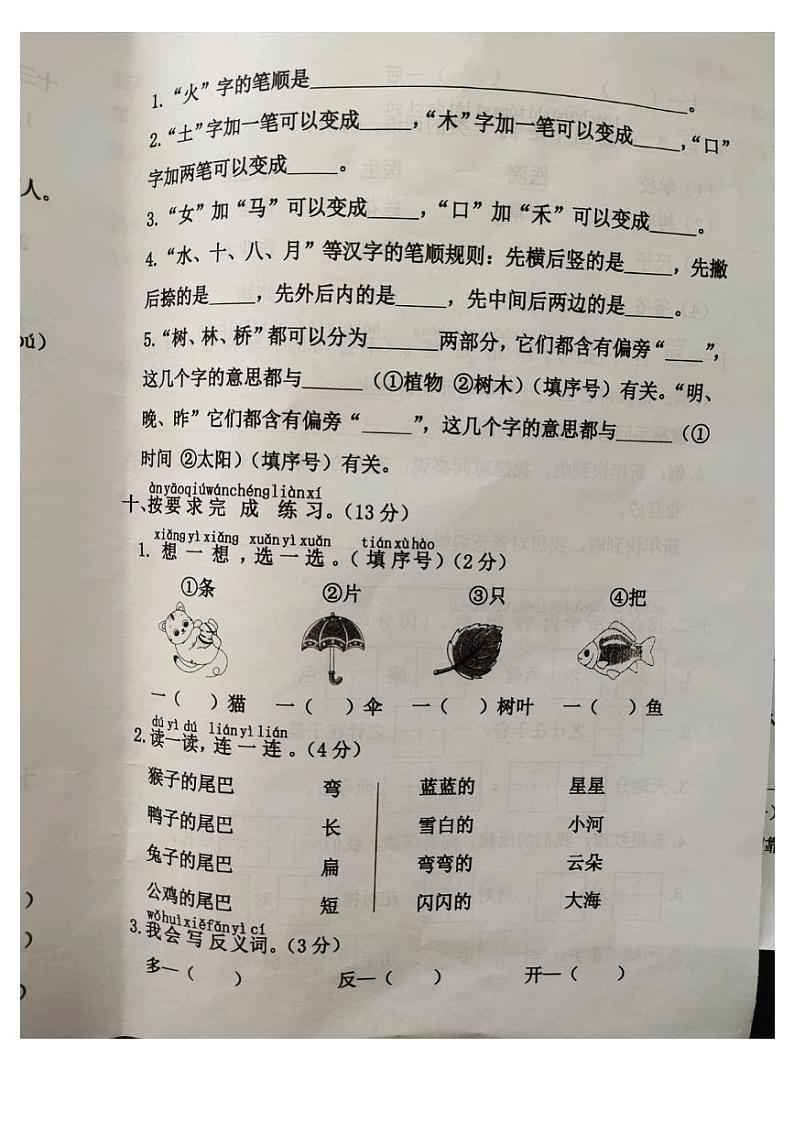 1. “火”字的笔顺是____________________。
2. “土”字加一笔可以变成_____，“木”字加一笔可以变成_____，“口”
字加两笔可以变成_____。
3. “女”加“马”可以变成_____，“口”加“禾”可以变成_____。
4. “水、十、八、月”等汉字的笔顺规则：先横后竖的是_____，先撇
后捺的是_____，先外后内的是_____，先中间后两边的是_____。
5. “树、林、桥”都可以分为_______两部分，它们都含有偏旁“____”，
这几个字的意思都与______（①植物 ②树木）（填序号）有关。“明、
晚、昨”它们都含有偏旁“_____”，这几个字的意思都与_____（①
时间 ②太阳）（填序号）有关。
ànyāoqiúwánchéngliànxí
十、按要求完 成 练 习。（13分）
xiǎngyìxiǎng xuǎnyìxuǎn tiánxùhào
1. 想 一 想 ，选 一 选 。（ 填 序号）（2分）
①条 ②片 ③只 ④把
一（ ）猫 一（ ）伞 一（ ）树叶 一（ ）鱼
dúyìdú liányìlián
2. 读一读，连 一 连 。（4分）
猴子的尾巴 弯 蓝蓝的 星星
鸭子的尾巴 长 雪白的 小河
兔子的尾巴 扁 弯弯的 云朵
公鸡的尾巴 短 闪闪的 大海
wǒhuìxiěfǎnyìcí
3. 我会 写 反义词。（3分）
多—（ ） 反—（ ） 开—（ ）
人。